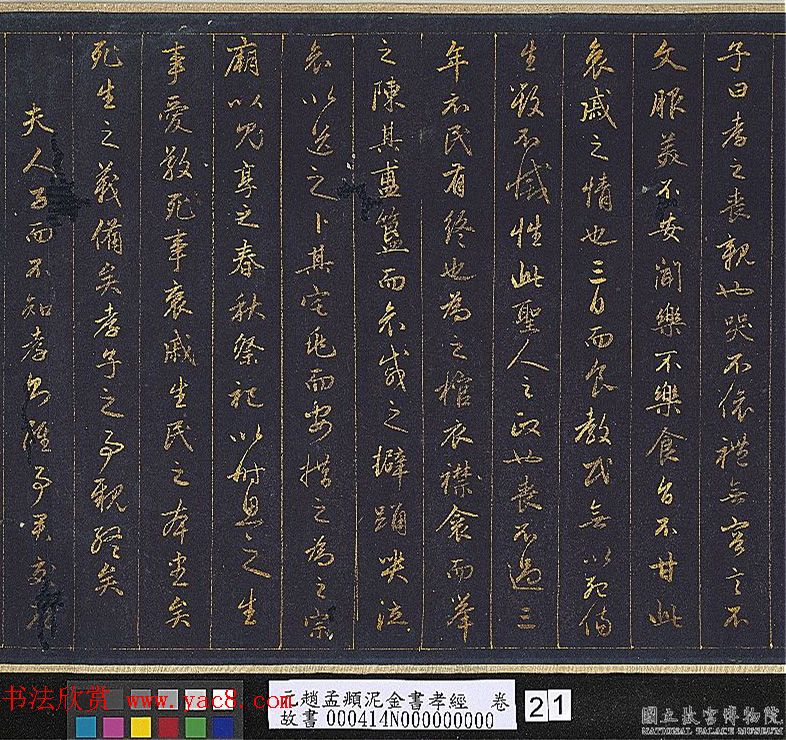 子曰孝之喪親也哭不依禮無容言不
文服美不安聞樂不樂食旨不甘此
哀戚之情也三日而食教民無以死傷
生毀不滅性此聖人之政也喪不過三
年示民有終也為之棺衣襟衾而舉
之陳其簠簋而哀戚之擗踊哭泣
哀以送之卜其宅兆而安措之為之宗
廟以鬼享之春秋祭祀以時思之生
事愛敬死事哀戚生民之本盡矣
死生之義備矣孝子之事親終矣
夫人子而不知孝
书法欣赏 www.yac8.com
元趙孟頫泥金書孝經 卷
故書 000414N000000000
21
國立故宮博物院
NATIONAL PALACE MUSEUM